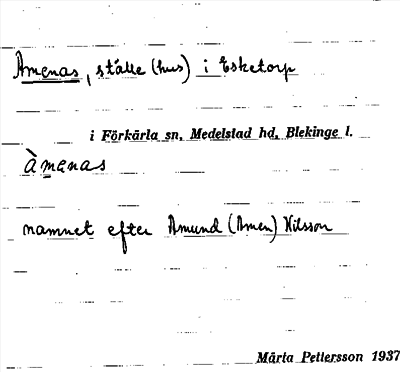 Amenas, ställe (hus) i Esketorp
i Förkärla sn, Medelstad hd, Blekinge l.
àmenas
namnet efter Amund (Amen) Nilsson
Märta Pettersson 1937